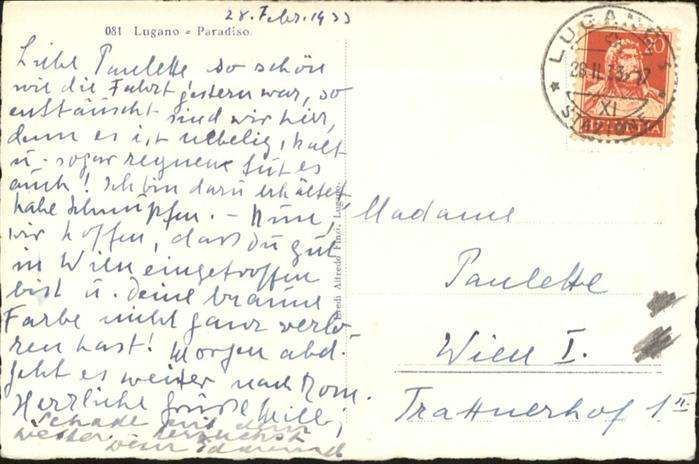 28. Febr. 1933
081 Lugano - Paradiso.
Liebe Paulette so schön
wie die Fahrt gestern war, so
enttäuscht sind wir hier,
denn es ist nebelig, kalt
u. sogar regnen tut es
auch! Ich bin dazu erkältet
habe Schnupfen. – Nun,
wir hoffen, dass Du gut
in Wien eingetroffen
bist u. Deine braune
Farbe nicht ganz verlo-
ren hast! Morgen abd.
geht es weiter nach Rom.
Herzliche Grüsse
Schade mit dem
Wetter.
Eredi Alfredo Finzi, Lugano.
LUGANO
28.II.33.
XI
20
HELVETIA
Madame
Paulette
Wien I.
Trattnerhof 1